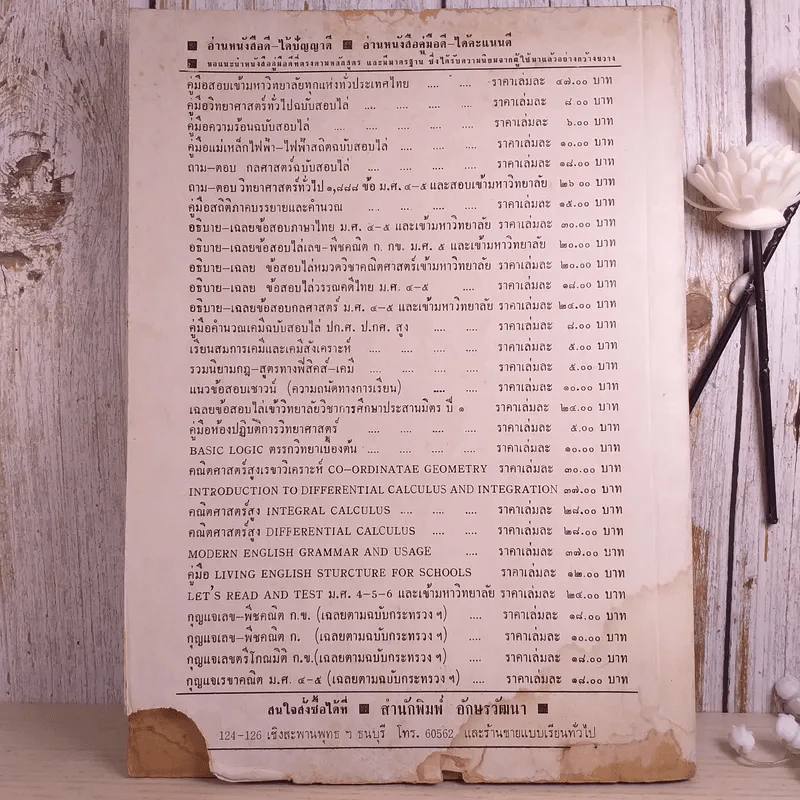 ■ อ่านหนังสือดี-ได้ปัญญาดี ■ อ่านหนังสือคู่มือดี-ได้คะแนนดี
■ ขอแนะนำหนังสือคู่มือดีที่ตรงตามหลักสูตร และมีมาตรฐาน ซึ่งได้รับความนิยมจากผู้ใช้มาแล้วอย่างกว้างขวาง
คู่มือสอบเข้ามหาวิทยาลัยทุกแห่งทั่วประเทศไทย .... .... ราคาเล่มละ ๔๗.๐๐ บาท
คู่มือวิทยาศาสตร์ทั่วไปฉบับสอบไล่ .... .... .... ราคาเล่มละ ๘.๐๐ บาท
คู่มือความร้อนฉบับสอบไล่ .... .... .... .... ราคาเล่มละ ๖.๐๐ บาท
คู่มือแม่เหล็กไฟฟ้า-ไฟฟ้าสถิตฉบับสอบไล่ .... .... ราคาเล่มละ ๑๐.๐๐ บาท
ถาม-ตอบ กลศาสตร์ฉบับสอบไล่ .... .... .... ราคาเล่มละ ๑๘.๐๐ บาท
ถาม-ตอบ วิทยาศาสตร์ทั่วไป ๑,๘๘๘ ข้อ ม.ศ. ๔-๕ และสอบเข้ามหาวิทยาลัย ๒๖.๐๐ บาท
คู่มือสถิติภาคบรรยายและคำนวณ .... .... .... ราคาเล่มละ ๑๕.๐๐ บาท
อธิบาย-เฉลยข้อสอบภาษาไทย ม.ศ. ๔-๕ และเข้ามหาวิทยาลัย ราคาเล่มละ ๓๐.๐๐ บาท
อธิบาย-เฉลยข้อสอบไล่เลข-พีชคณิต ก. กข. ม.ศ. ๕ และเข้ามหาวิทยาลัย ๒๐.๐๐ บาท
อธิบาย-เฉลย ข้อสอบไล่หมวดวิชาคณิตศาสตร์เข้ามหาวิทยาลัย ราคาเล่มละ ๒๐.๐๐ บาท
อธิบาย-เฉลย ข้อสอบไล่วรรณคดีไทย ม.ศ. ๔-๕ .... ราคาเล่มละ ๑๘.๐๐ บาท
อธิบาย-เฉลยข้อสอบกลศาสตร์ ม.ศ. ๔-๕ และเข้ามหาวิทยาลัย ราคาเล่มละ ๒๔.๐๐ บาท
คู่มือคำนวณเคมีฉบับสอบไล่ ปก.ศ. ป.กศ. สูง .... .... ราคาเล่มละ ๘.๐๐ บาท
เรียนสมการเคมีและเคมีสังเคราะห์ .... .... .... ราคาเล่มละ ๕.๐๐ บาท
รวมนิยามกฎ-สูตรทางฟิสิคส์-เคมี .... .... .... ราคาเล่มละ ๕.๐๐ บาท
แนวข้อสอบเชาวน์ (ความถนัดทางการเรียน) .... .... ราคาเล่มละ ๑๐.๐๐ บาท
เฉลยข้อสอบไล่เข้าวิทยาลัยวิชาการศึกษาประสานมิตร ปี ๑ ราคาเล่มละ ๒๔.๐๐ บาท
คู่มือห้องปฏิบัติการวิทยาศาสตร์ .... .... .... ราคาเล่มละ ๕.๐๐ บาท
BASIC LOGIC ตรรกวิทยาเบื้องต้น .... .... .... ราคาเล่มละ ๑๐.๐๐ บาท
คณิตศาสตร์สูงเรขาวิเคราะห์ CO-ORDINATAE GEOMETRY ราคาเล่มละ ๓๐.๐๐ บาท
INTRODUCTION TO DIFFERENTIAL CALCULUS AND INTEGRATION ๓๗.๐๐ บาท
คณิตศาสตร์สูง INTEGRAL CALCULUS .... .... .... ราคาเล่มละ ๒๘.๐๐ บาท
คณิตศาสตร์สูง DIFFERENTIAL CALCULUS .... .... ราคาเล่มละ ๒๘.๐๐ บาท
MODERN ENGLISH GRAMMAR AND USAGE .... ราคาเล่มละ ๓๗.๐๐ บาท
คู่มือ LIVING ENGLISH STURCTURE FOR SCHOOLS ราคาเล่มละ ๑๒.๐๐ บาท
LET'S READ AND TEST ม.ศ. 4-5-6 และเข้ามหาวิทยาลัย ราคาเล่มละ ๒๔.๐๐ บาท
กุญแจเลข-พีชคณิต ก.ข. (เฉลยตามฉบับกระทรวง ฯ) .... ราคาเล่มละ ๑๘.๐๐ บาท
กุญแจเลข-พีชคณิต ก. (เฉลยตามฉบับกระทรวง ฯ) .... ราคาเล่มละ ๑๐.๐๐ บาท
กุญแจเลขตรีโกณมิติ ก.ข.(เฉลยตามฉบับกระทรวง ฯ) .... ราคาเล่มละ ๑๘.๐๐ บาท
กุญแจเรขาคณิต ม.ศ. ๔-๕ (เฉลยตามฉบับกระทรวง ฯ) .... ราคาเล่มละ ๑๘.๐๐ บาท
สนใจสั่งซื้อได้ที่ ■ สำนักพิมพ์ อักษรวัฒนา ■
124-126 เชิงสะพานพุทธ ฯ ธนบุรี โทร. 60562 และร้านขายแบบเรียนทั่วไป